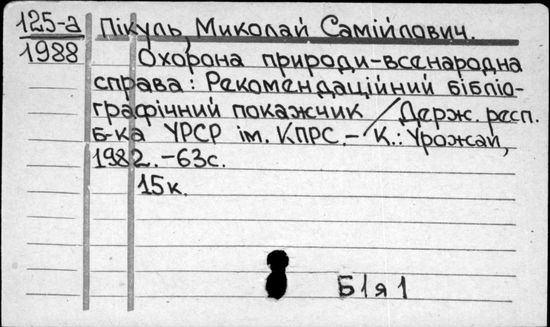 125-а Пікуль, Миколай Самійлович.
1988 Охорона природи-всенародна
справа: Рекомендаційний бібліо-
графічний покажчик / Держ. респ.
б-ка УРСР ім. КПРС.- К.: Урожай,
1982.-63с.
15к.
Б1я1